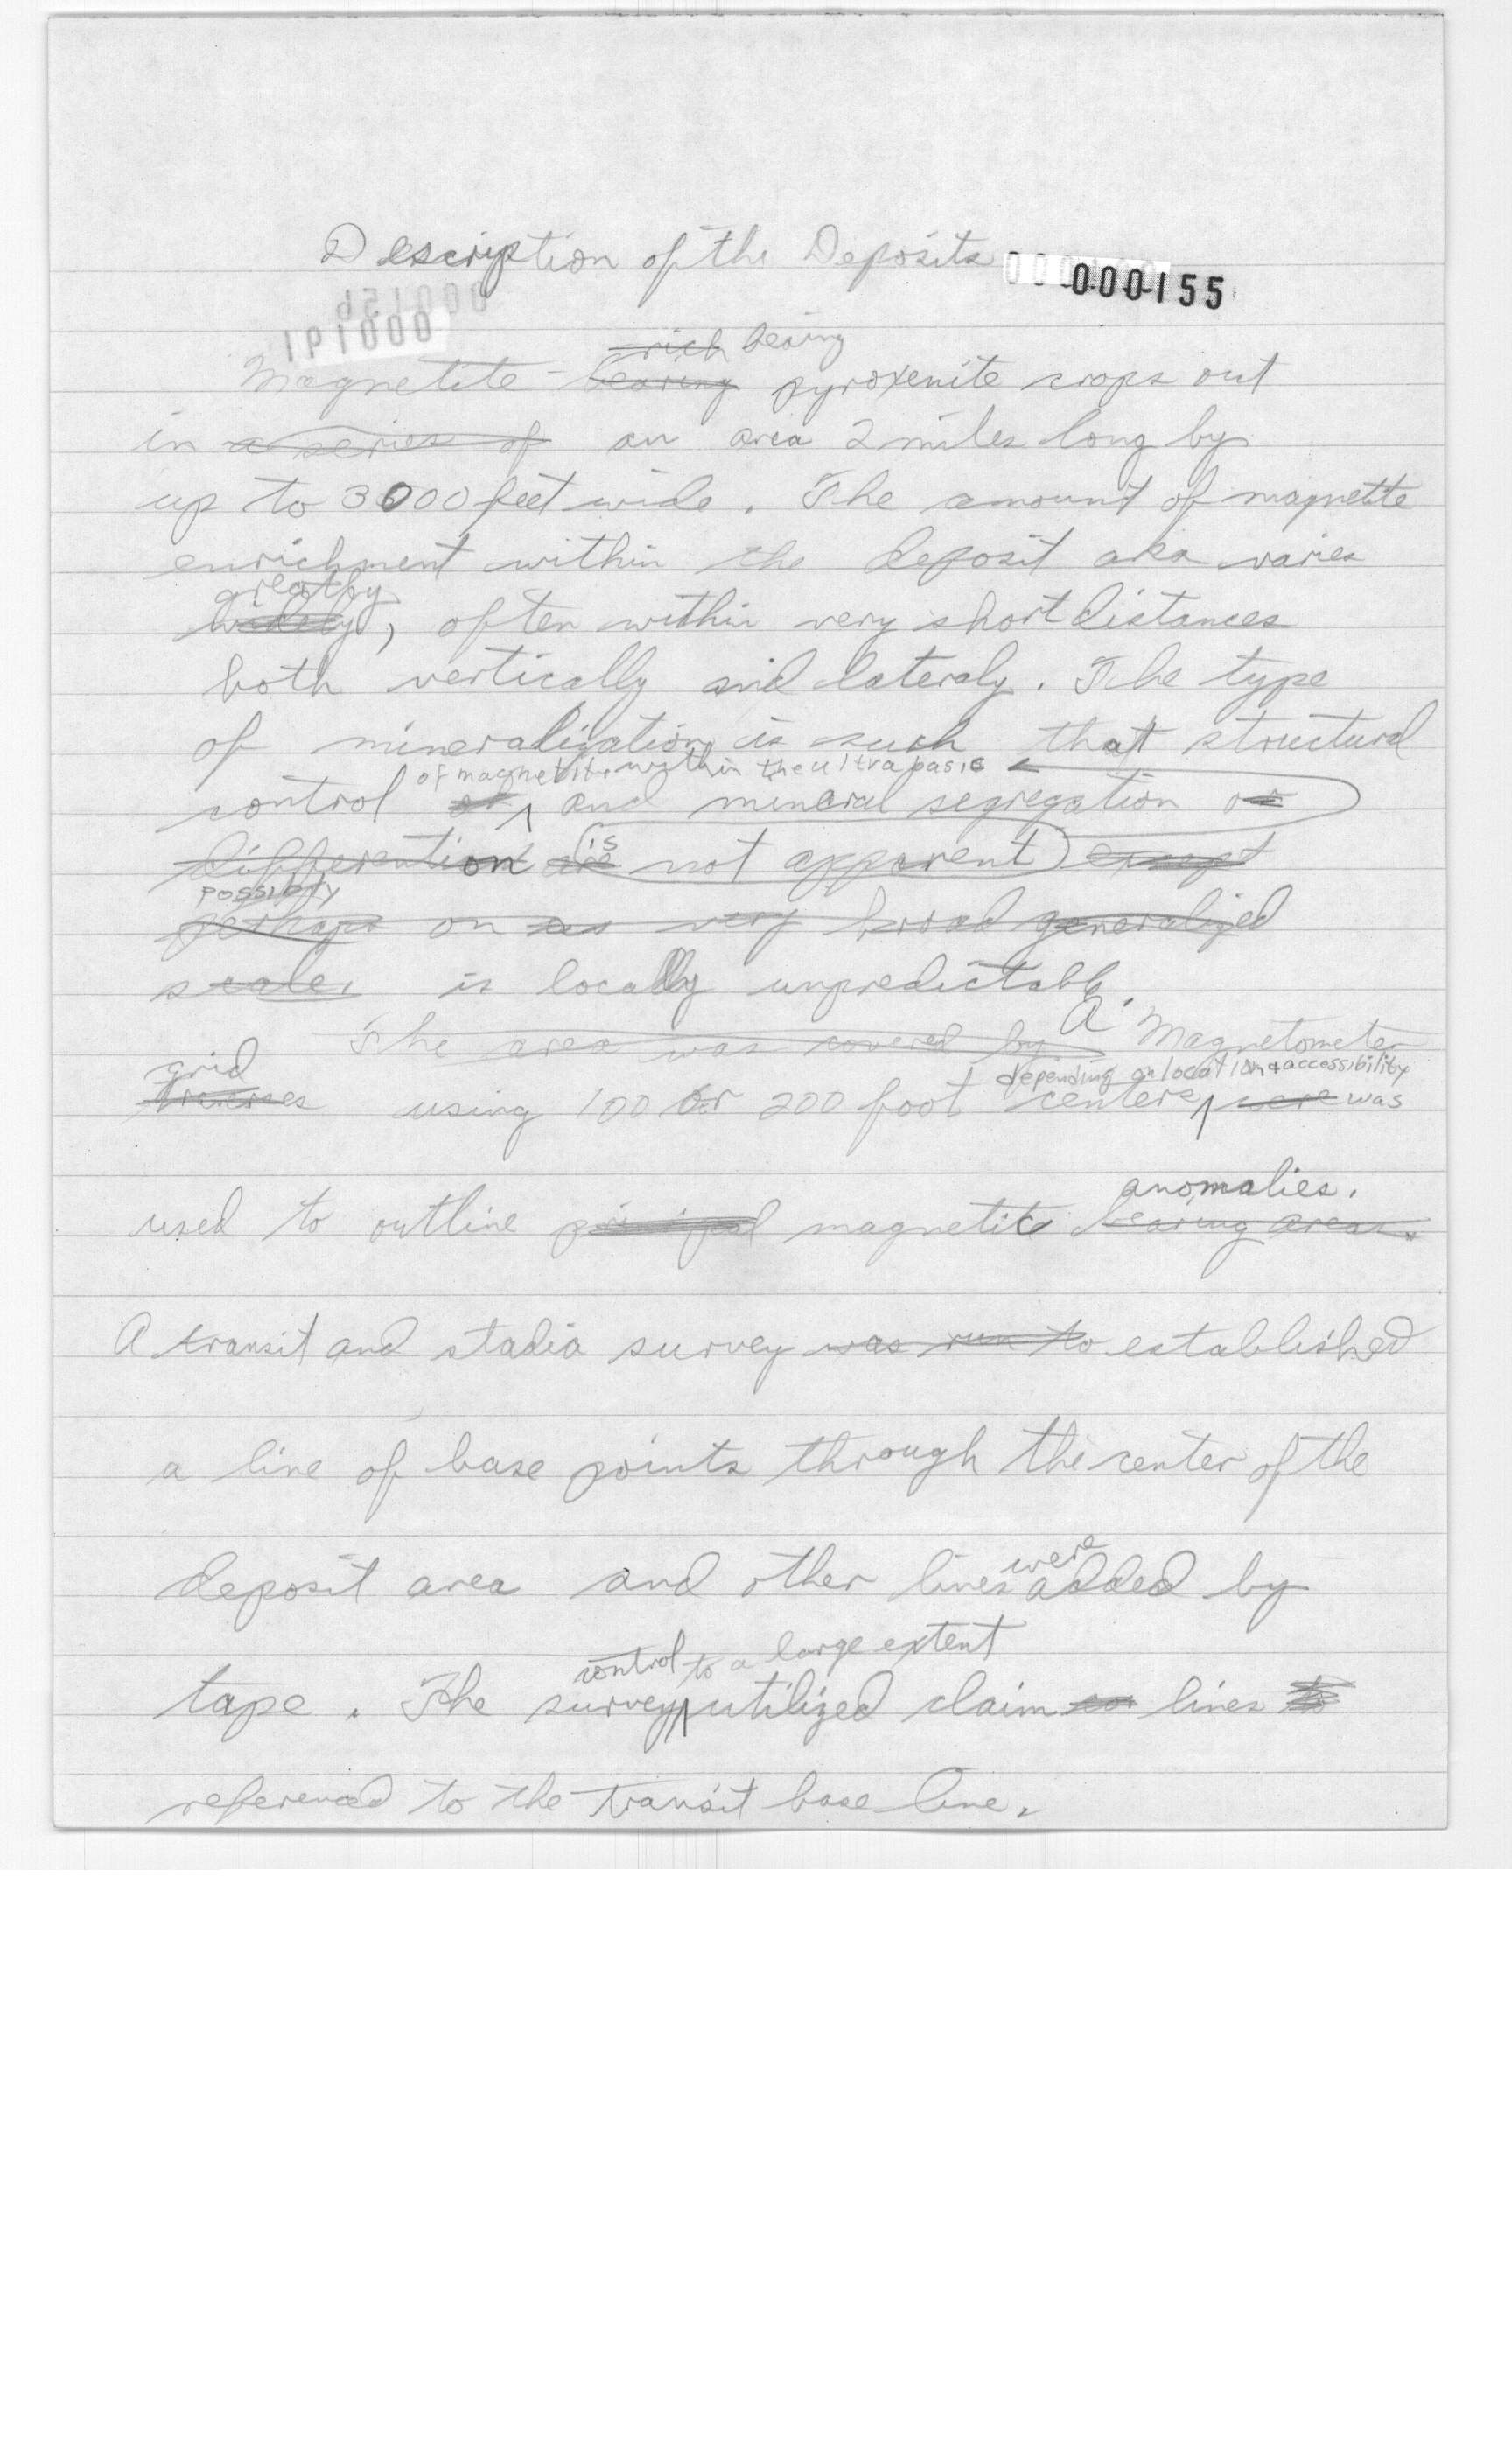 Description of the Deposits
000155
rich bearing
Magnetite - bearing pyroxenite crops out
in a series of an area 2 miles long by
up to 3000 feet wide. The amount of magnetite
enrichment within the deposit area varies
greatly
widely, often within very short distances
both vertically and lateraly. The type
of mineralization is such that structural
of magnetite within the ultrabasic
control and mineral segregation or
is
differention are not apparent except
possibly
perhaps on a very broad generalized
scale. is locally unpredictable.
The area was covered by A Magnetometer
grid
depending on location & accessibility
traverses using 100 or 200 foot centers were was
anomalies.
used to outline principal magnetite bearing areas.
A transit and stadia survey was run to established
a line of base points through the center of the
were
deposit area and other lines added by
control to a large extent
tape. The survey utilized claim lines
referenced to the transit base line.